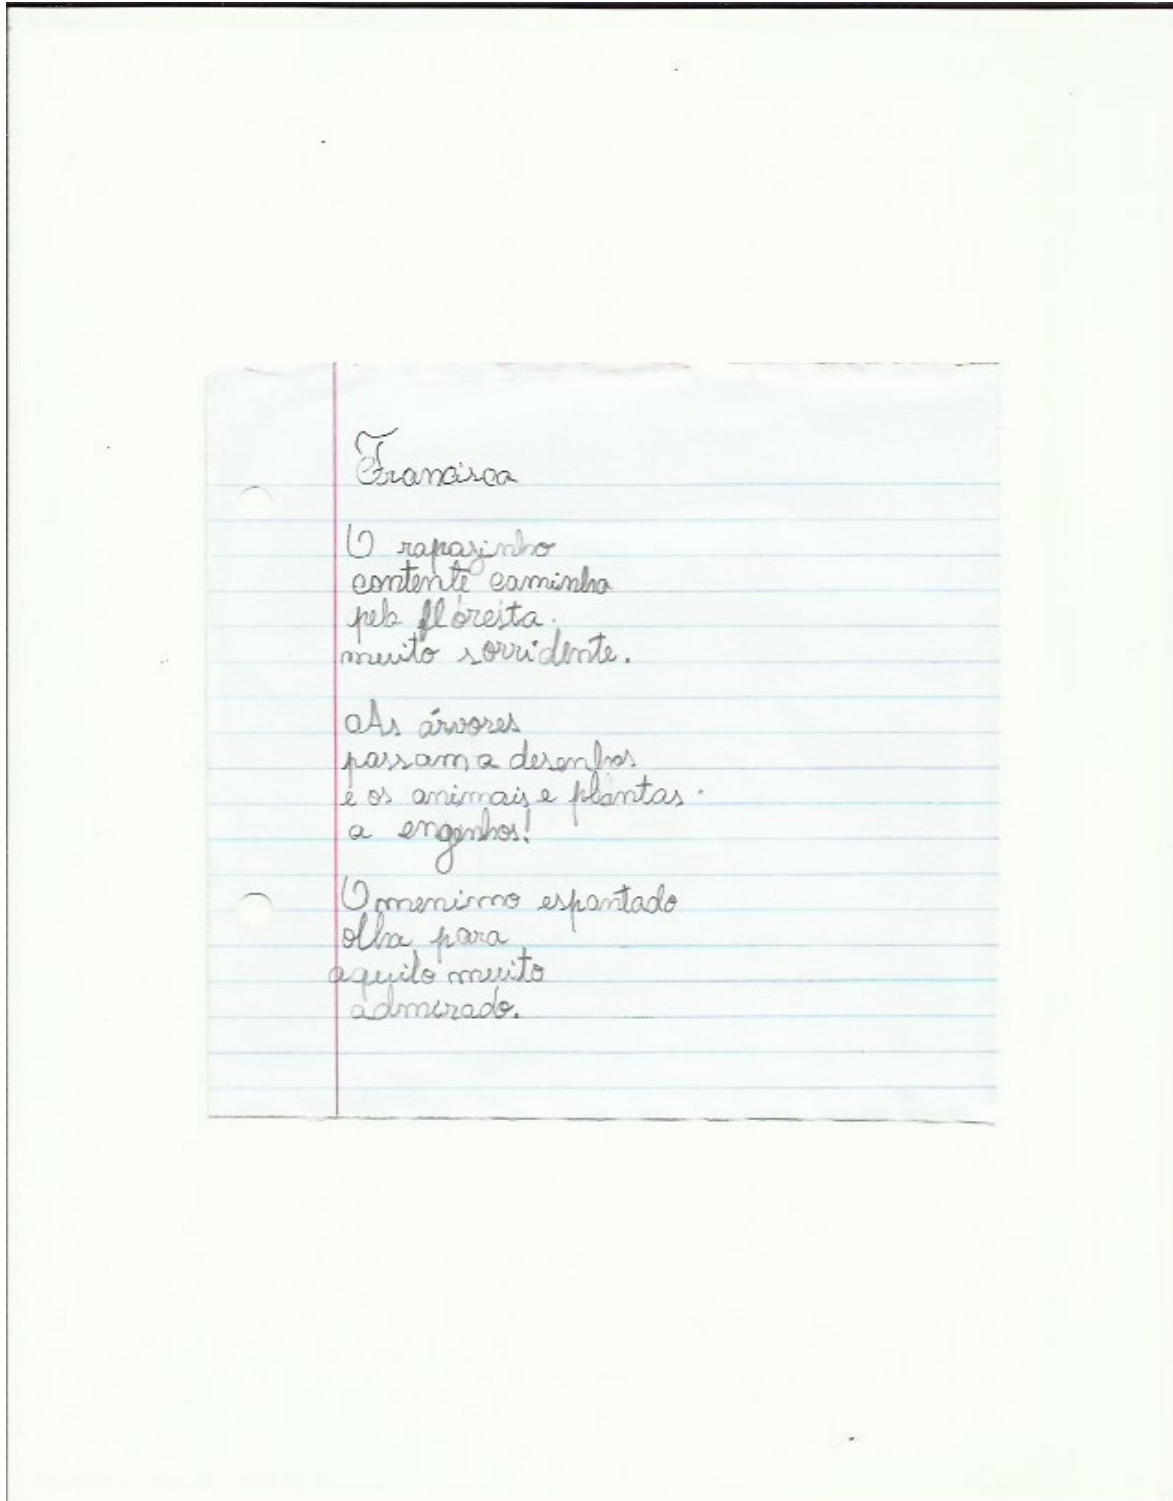 Francisca
O rapazinho
contente caminha
pela floresta
muito sorridente.
As árvores
passam a desenhos
e os animais e plantas
a engenhos!
O menino espantado
olha para
aquilo muito
admirado.